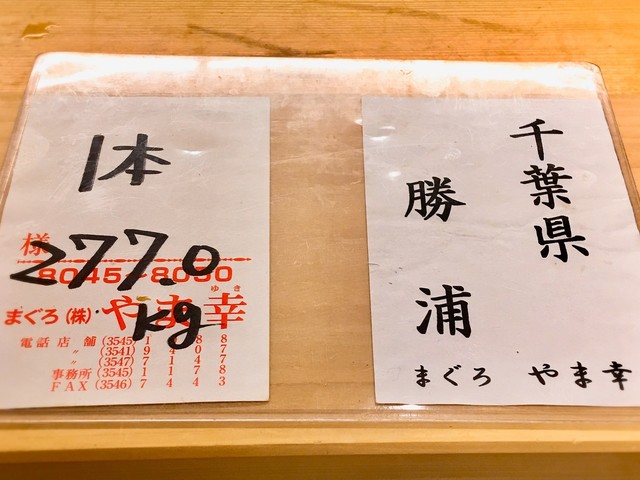 1本
様
277.0
kg
8045~8050
まぐろ(株)やま幸
ゆき
電話店舗(3545)1 8 8
〃(3541)9 4 0 7
〃(3547)7 1 4 7
事務所(3545)1 1 7 8
FAX(3546)7 4 4 3
千葉県
勝浦
まぐろ やま幸